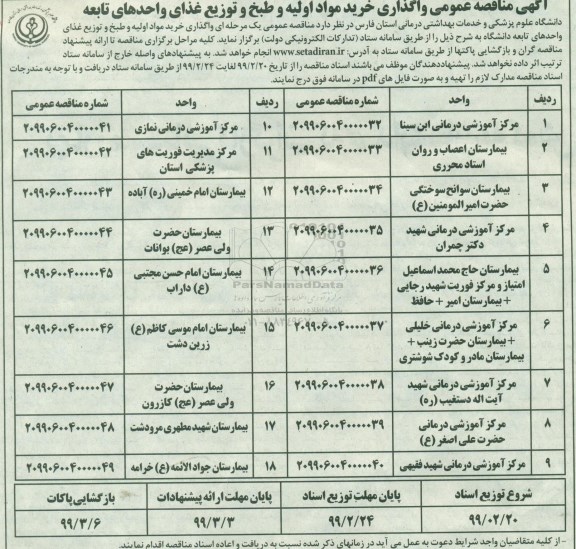 آگهی مناقصه عمومی واگذاری خرید مواد اولیه و طبخ و توزیع غذای واحدهای تابعه
دانشگاه علوم پزشکی و خدمات بهداشتی درمانی استان فارس در نظر دارد مناقصه عمومی یک مرحله ای واگذاری خرید مواد اولیه و طبخ و توزیع غذای
واحدهای تابعه دانشگاه به شرح ذیل را از طریق سامانه ستاد (تدارکات الکترونیکی دولت) برگزار نماید. کلیه مراحل برگزاری مناقصه تا ارائه پیشنهاد
مناقصه گران و بازگشایی پاکتها از طریق سامانه ستاد به آدرس: www.setadiran.ir انجام خواهد شد. به پیشنهادهای واصله خارج از سامانه ستاد
ترتیب اثر داده نخواهد شد. پیشنهاددهندگان موظف می باشند اسناد مناقصه را از تاریخ ۹۹/۲/۲۰ لغایت ۹۹/۲/۲۴ از طریق سامانه ستاد دریافت و با توجه به مندرجات
اسناد مناقصه مدارک لازم را تهیه و به صورت فایل های pdf در سامانه فوق درج نمایند.
ردیف واحد شماره مناقصه عمومی ردیف واحد شماره مناقصه عمومی
۱ مرکز آموزشی درمانی ابن سینا ۲۰۹۹۰۶۰۰۴۰۰۰۰۰۳۲ ۱۰ مرکز آموزشی درمانی نمازی ۲۰۹۹۰۶۰۰۴۰۰۰۰۰۴۱
۲ بیمارستان اعصاب و روان
استاد محرری ۲۰۹۹۰۶۰۰۴۰۰۰۰۰۳۳ ۱۱ مرکز مدیریت فوریت های
پزشکی استان ۲۰۹۹۰۶۰۰۴۰۰۰۰۰۴۲
۳ بیمارستان سوانح سوختگی
حضرت امیرالمومنین (ع) ۲۰۹۹۰۶۰۰۴۰۰۰۰۰۳۴ ۱۲ بیمارستان امام خمینی (ره) آباده ۲۰۹۹۰۶۰۰۴۰۰۰۰۰۴۳
۴ مرکز آموزشی درمانی شهید
دکتر چمران ۲۰۹۹۰۶۰۰۴۰۰۰۰۰۳۵ ۱۳ بیمارستان حضرت
ولی عصر (عج) بوانات ۲۰۹۹۰۶۰۰۴۰۰۰۰۰۴۴
۵ بیمارستان حاج محمد اسماعیل
امتیاز و مرکز فوریت شهید رجایی
+ بیمارستان امیر + حافظ ۲۰۹۹۰۶۰۰۴۰۰۰۰۰۳۶ ۱۴ بیمارستان امام حسن مجتبی
(ع) داراب ۲۰۹۹۰۶۰۰۴۰۰۰۰۰۴۵
۶ مرکز آموزشی درمانی خلیلی
+ بیمارستان حضرت زینب +
بیمارستان مادر و کودک شوشتری ۲۰۹۹۰۶۰۰۴۰۰۰۰۰۳۷ ۱۵ بیمارستان امام موسی کاظم (ع)
زرین دشت ۲۰۹۹۰۶۰۰۴۰۰۰۰۰۴۶
۷ مرکز آموزشی درمانی شهید
آیت اله دستغیب (ره) ۲۰۹۹۰۶۰۰۴۰۰۰۰۰۳۸ ۱۶ بیمارستان حضرت
ولی عصر (عج) کازرون ۲۰۹۹۰۶۰۰۴۰۰۰۰۰۴۷
۸ مرکز آموزشی درمانی
حضرت علی اصغر (ع) ۲۰۹۹۰۶۰۰۴۰۰۰۰۰۳۹ ۱۷ بیمارستان شهید مطهری مرودشت ۲۰۹۹۰۶۰۰۴۰۰۰۰۰۴۸
۹ مرکز آموزشی درمانی شهید فقیهی ۲۰۹۹۰۶۰۰۴۰۰۰۰۰۴۰ ۱۸ بیمارستان جواد الائمه (ع) خرامه ۲۰۹۹۰۶۰۰۴۰۰۰۰۰۴۹
شروع توزیع اسناد پایان مهلت توزیع اسناد پایان مهلت ارائه پیشنهادات بازگشایی پاکات
۹۹/۰۲/۲۰ ۹۹/۲/۲۴ ۹۹/۳/۳ ۹۹/۳/۶
- از کلیه متقاضیان واجد شرایط دعوت به عمل می آید در زمانهای ذکر شده نسبت به دریافت و اعاده اسناد مناقصه اقدام نمایند.
ParsNamadData